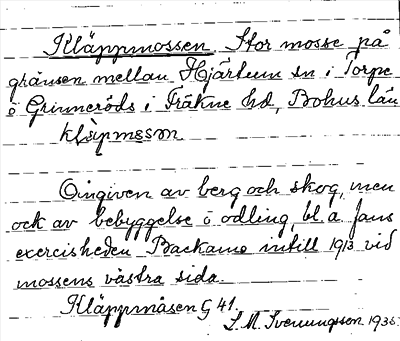 Kläppmossen Stor mosse på
gränsen mellan Hjärtum sn i Torpe
o Grinneröds i Fräkne hd, Bohus län
klæpmåsən
Omgiven av berg och skog, men
ock av bebyggelse o odling, bl. a fans
exercisheden Backamo intill 1913 vid
mossens västra sida.
Kläppmåsen G 41.
S. M. Svenungsson 1935